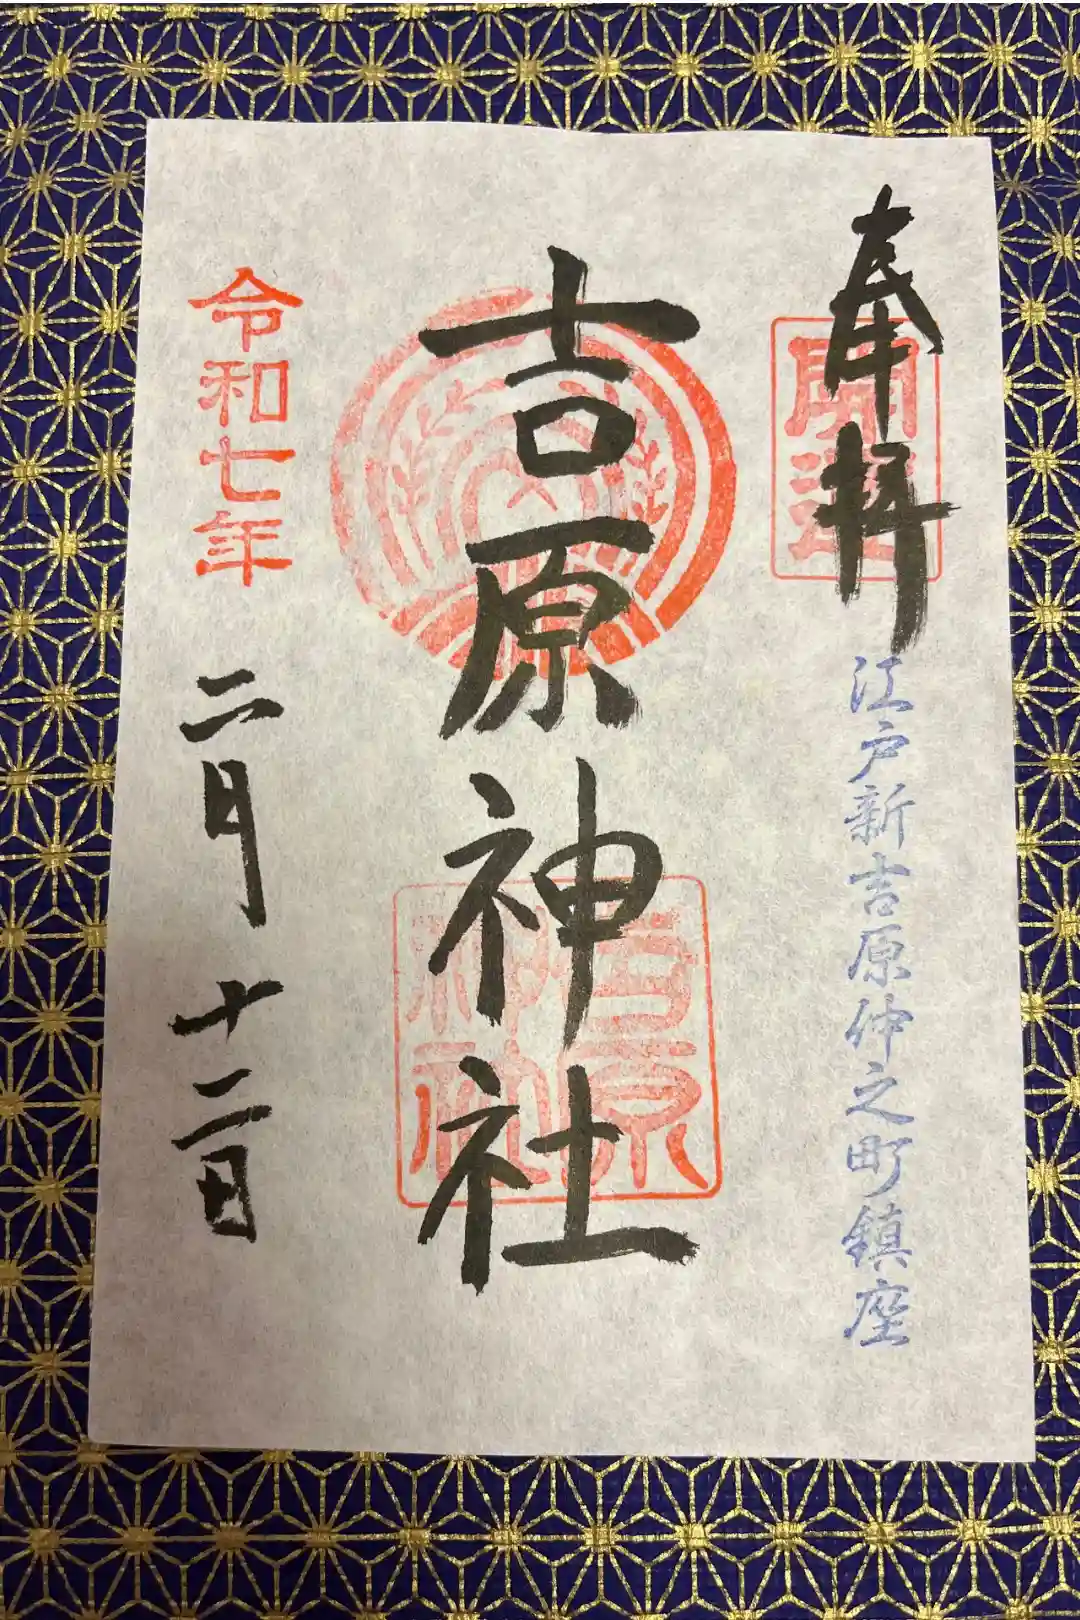 奉拝
開運
江戸新吉原仲之町鎮座
吉原神社
吉原
神社
令和七年
二月十二日